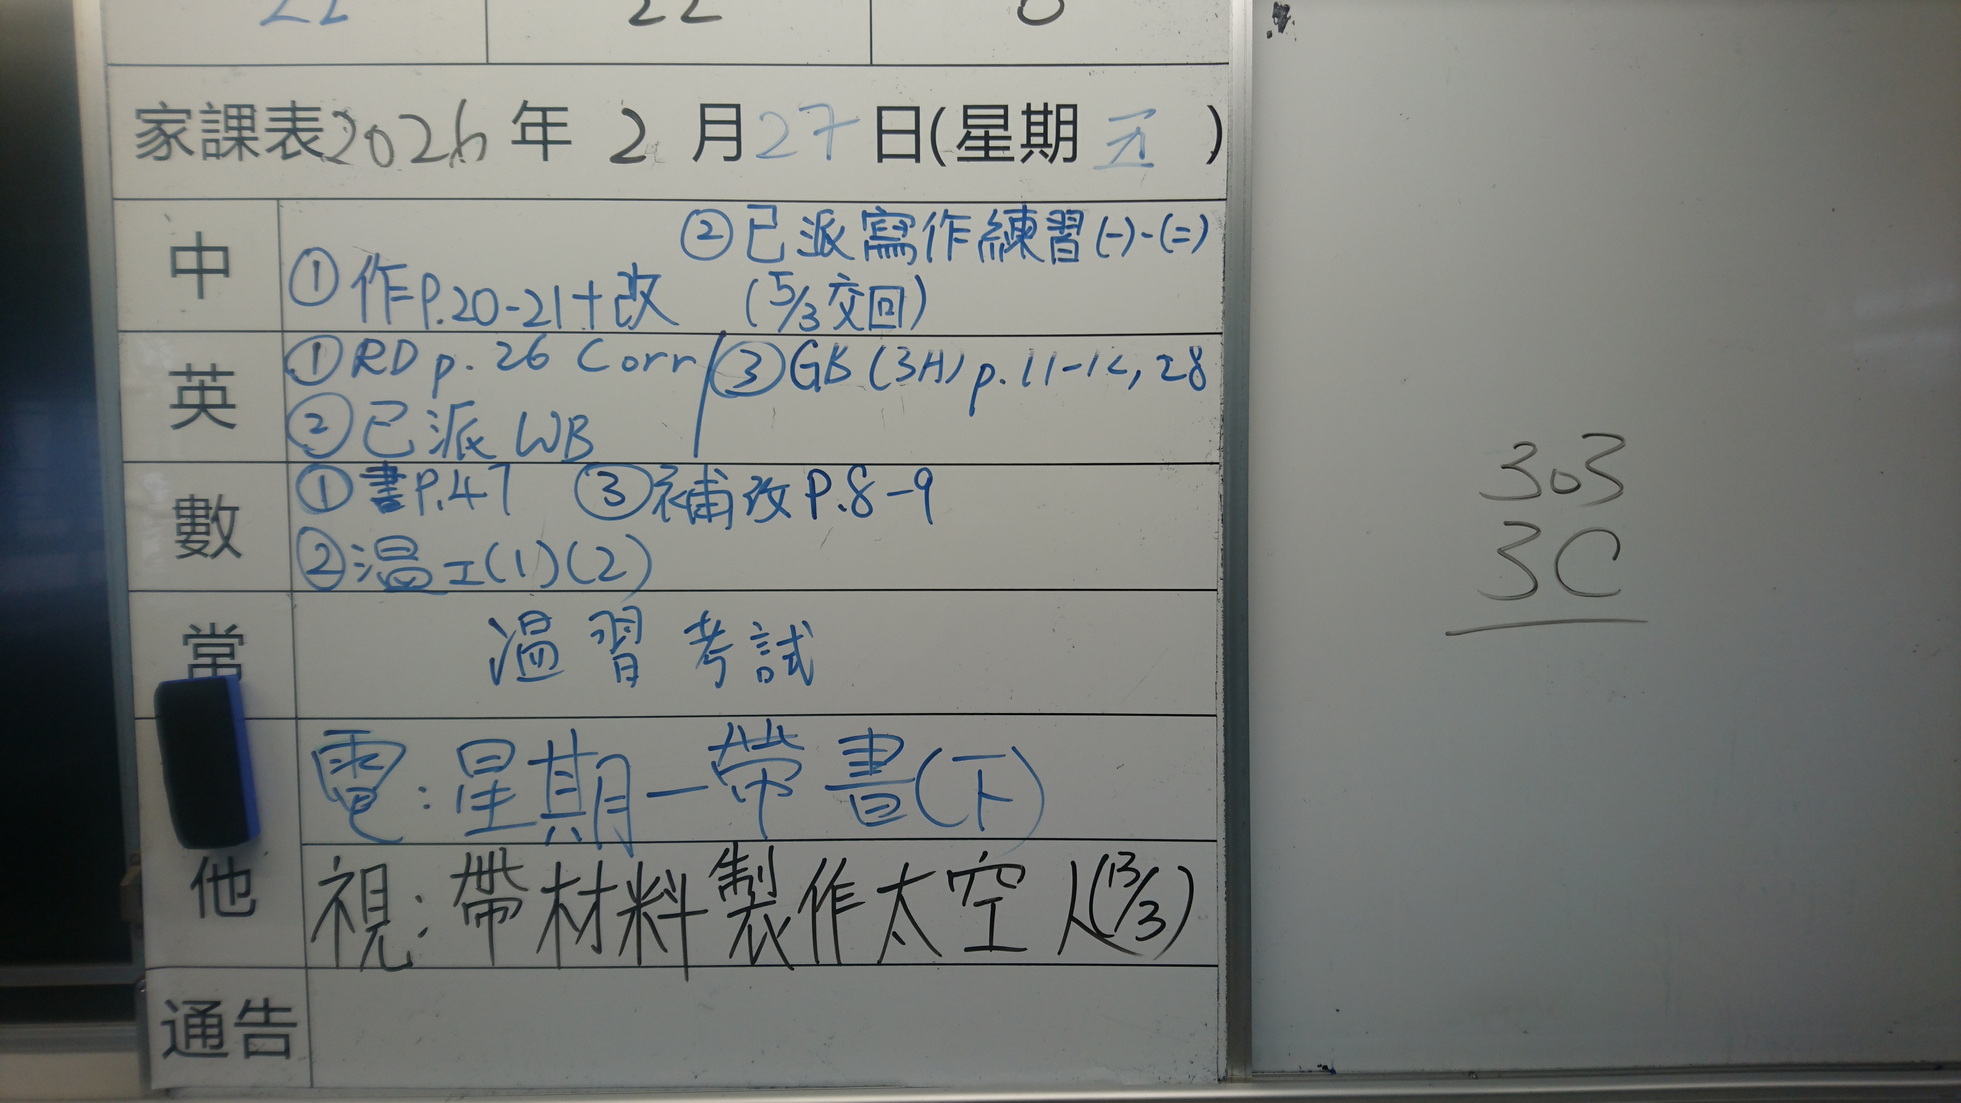 22 22 0
家課表2026年2月27日(星期五)
中
②已派寫作練習(一)-(二)
①作P.20-21+改 (5/3交回)
英
①RD p. 26 Corr ③GB (3A) p. 11-12, 28
②已派 WB
數
①書P.47 ③補改P.8-9
②溫工(1)(2)
常
溫習考試
電:星期一帶書(下)
他
視:帶材料製作太空人(13/3)
通告
303
3C